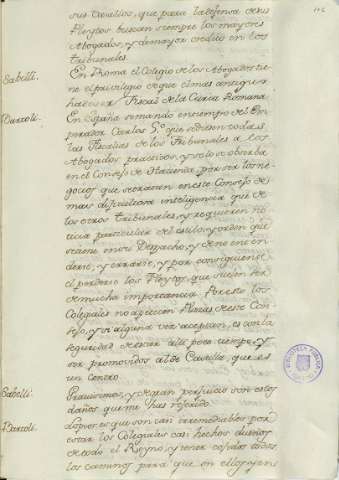 116
sus Cavallos, que para la defensa de sus
Pleytos buscan siempre los mayores
Abogados, y de mayor credito en los
tribunales.
Sabelli. En Roma el Colegio de los Abogados tie
ne el privilegio de que el mas antiguo
ha de ser Fiscal de la Curia Romana.
Bartoli. En España se mandò en tiempo del Em
perador Carlos 5.º que se diesen todas
las Fiscalias de los Tribunales a los
Abogados practicos, y solo se observa
en el Consejo de Hacienda, por ser los ne
gocios que se tratan en este Consejo de
mas dificultosa inteligencia que de
los otros tribunales, y requieren no
ticia particular del estilo, y orden que
se tiene en su Despacho, y de no enten
derle, y errarle, y por consiguiente
el perderse los Pleytos, que suelen ser
de mucha importancia. Por esto los
Colegiales no apetecen Plazas de este Con
sejo, y si alguna vez aceptan, es con la
seguridad de estar alli poco tiempo, y
ser promovidos al de Castilla, que es
un Centro.
Sabelli. Gravisimos, y de gran perjuicio son estos
daños que me has referido.
Bartoli. Lo peor es que son casi irremediables por
estar los Colegiales tan hechos dueños
de todo el Reyno, y tener cojidos todos
los caminos para que en ellos ojens
BIBLIOTECA PUBLICA